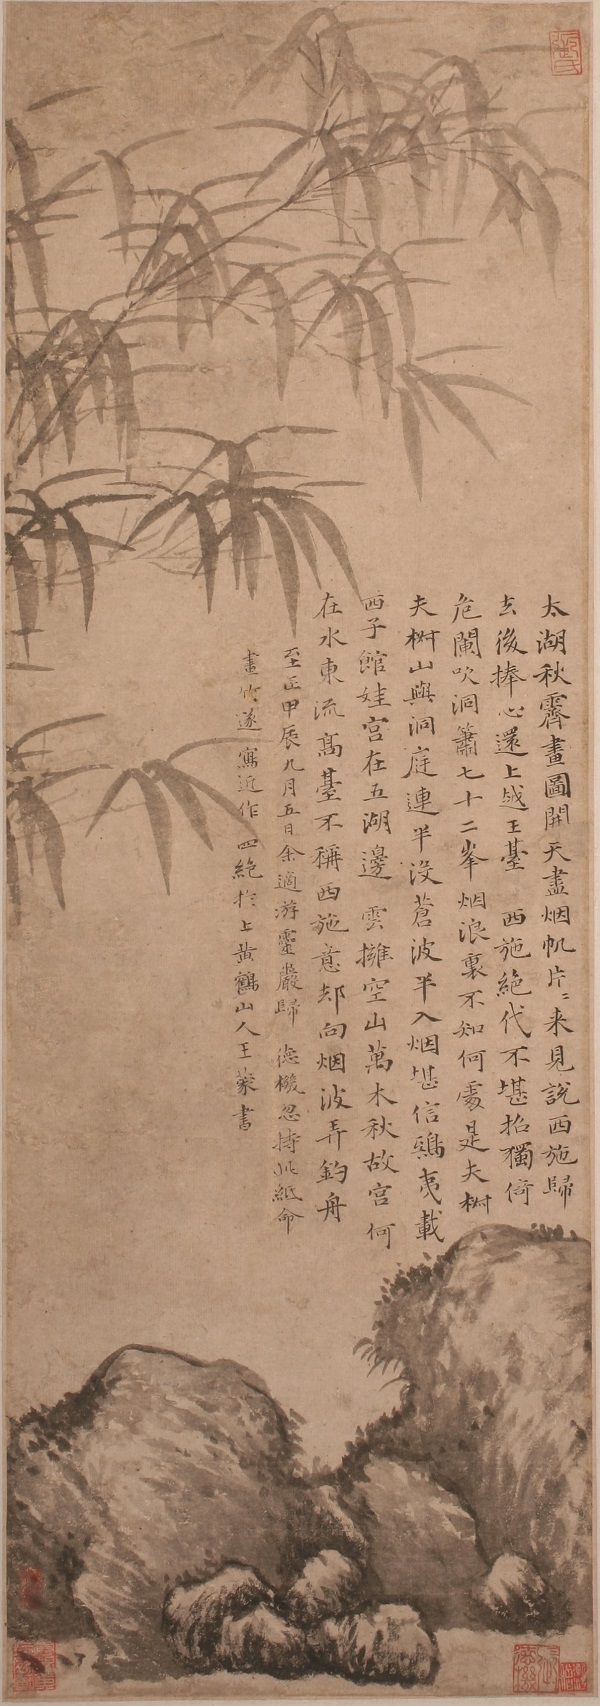 太湖秋霽畫圖開天盡烟帆片〻来見說西施歸
去後捧心還上越王臺 西施絶代不堪招獨倚
危闌吹洞簫七十二峯烟浪裏不知何處是夫樹
夫樹山與洞庭連半没蒼波半入烟堪信鴟夷載
西子館娃宫在五湖邊 雲擁空山萬木秋故宫何
在水東流高臺不稱西施意却向烟波弄釣舟
至正甲辰九月五日余適游靈巖歸 德機忽持此紙命
畫竹遂寫近作四絶於上黄鶴山人王蒙書